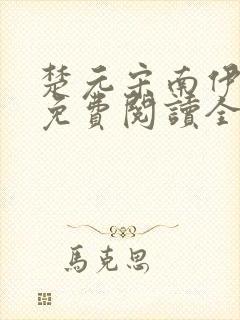 楚元宗南伊
免費閱讀全
馬克思